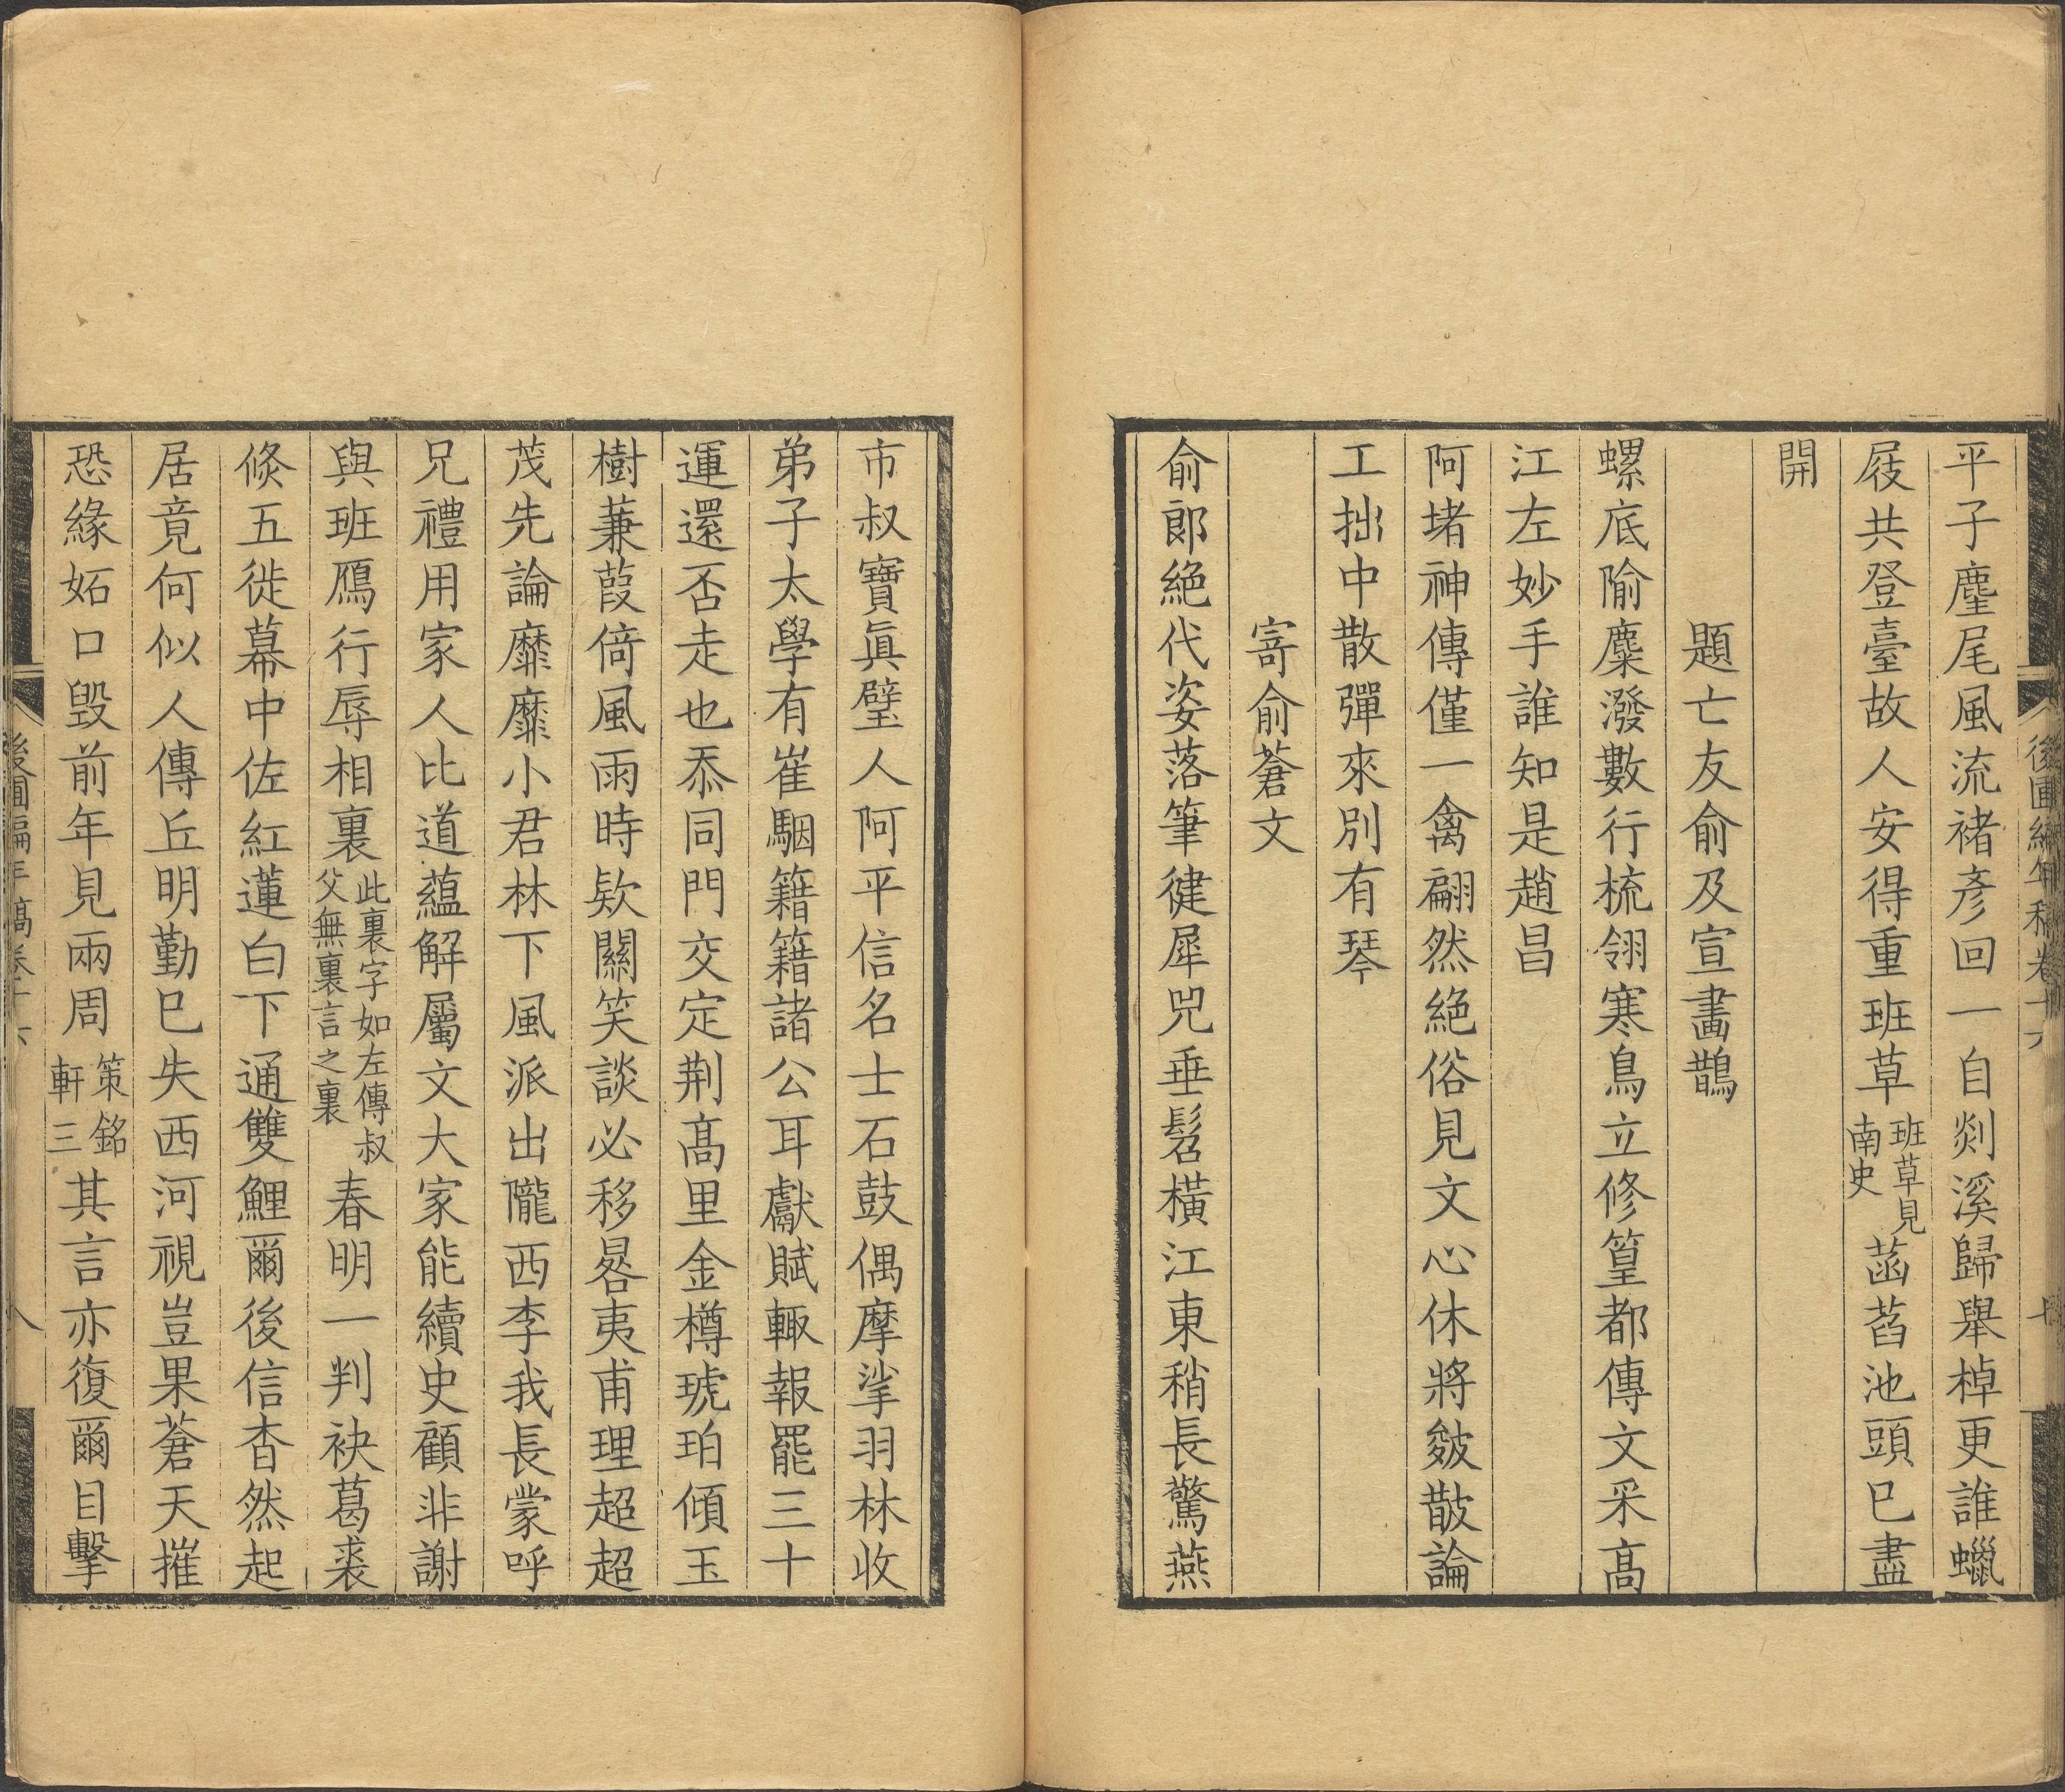 平子麈尾風流褚彥回一自剡溪歸舉棹更誰蠟
屐共登臺故人安得重班草班草見南史菡萏池頭已盡
開
題亡友俞及宣畵鵲
螺底隃麋潑數行梳翎寒鳥立修篁都傳文采高
江左妙手誰知是趙昌
阿堵神傳僅一禽翩然絕俗見文心休將皴皵論
工拙中散彈來別有琴
寄俞蒼文
俞郎絕代姿落筆徤犀兕垂髫橫江東稍長驚燕
市叔寶眞璧人阿平信名士石鼓偶摩挲羽林收
弟子太學有崔駰籍籍諸公耳獻賦輙報罷三十
運還否走也忝同門交定荆髙里金樽琥珀傾玉
樹蒹葭倚風雨時欵關笑談必移晷夷甫理超超
茂先論靡靡小君林下風派出隴西李我長蒙呼
兄禮用家人比道蘊解屬文大家能續史顧非謝
與班鴈行辱相裏此裏字如左傳叔父無裏言之裏春明一判袂葛裘
倐五徙幕中佐紅蓮白下通雙鯉爾後信杳然起
居竟何似人傳丘明勤已失西河視豈果蒼天摧
恐緣妬口毀前年見兩周策銘軒三其言亦復爾目擊
後圃編年稿卷十六
七
後圃編年稿卷十六
八